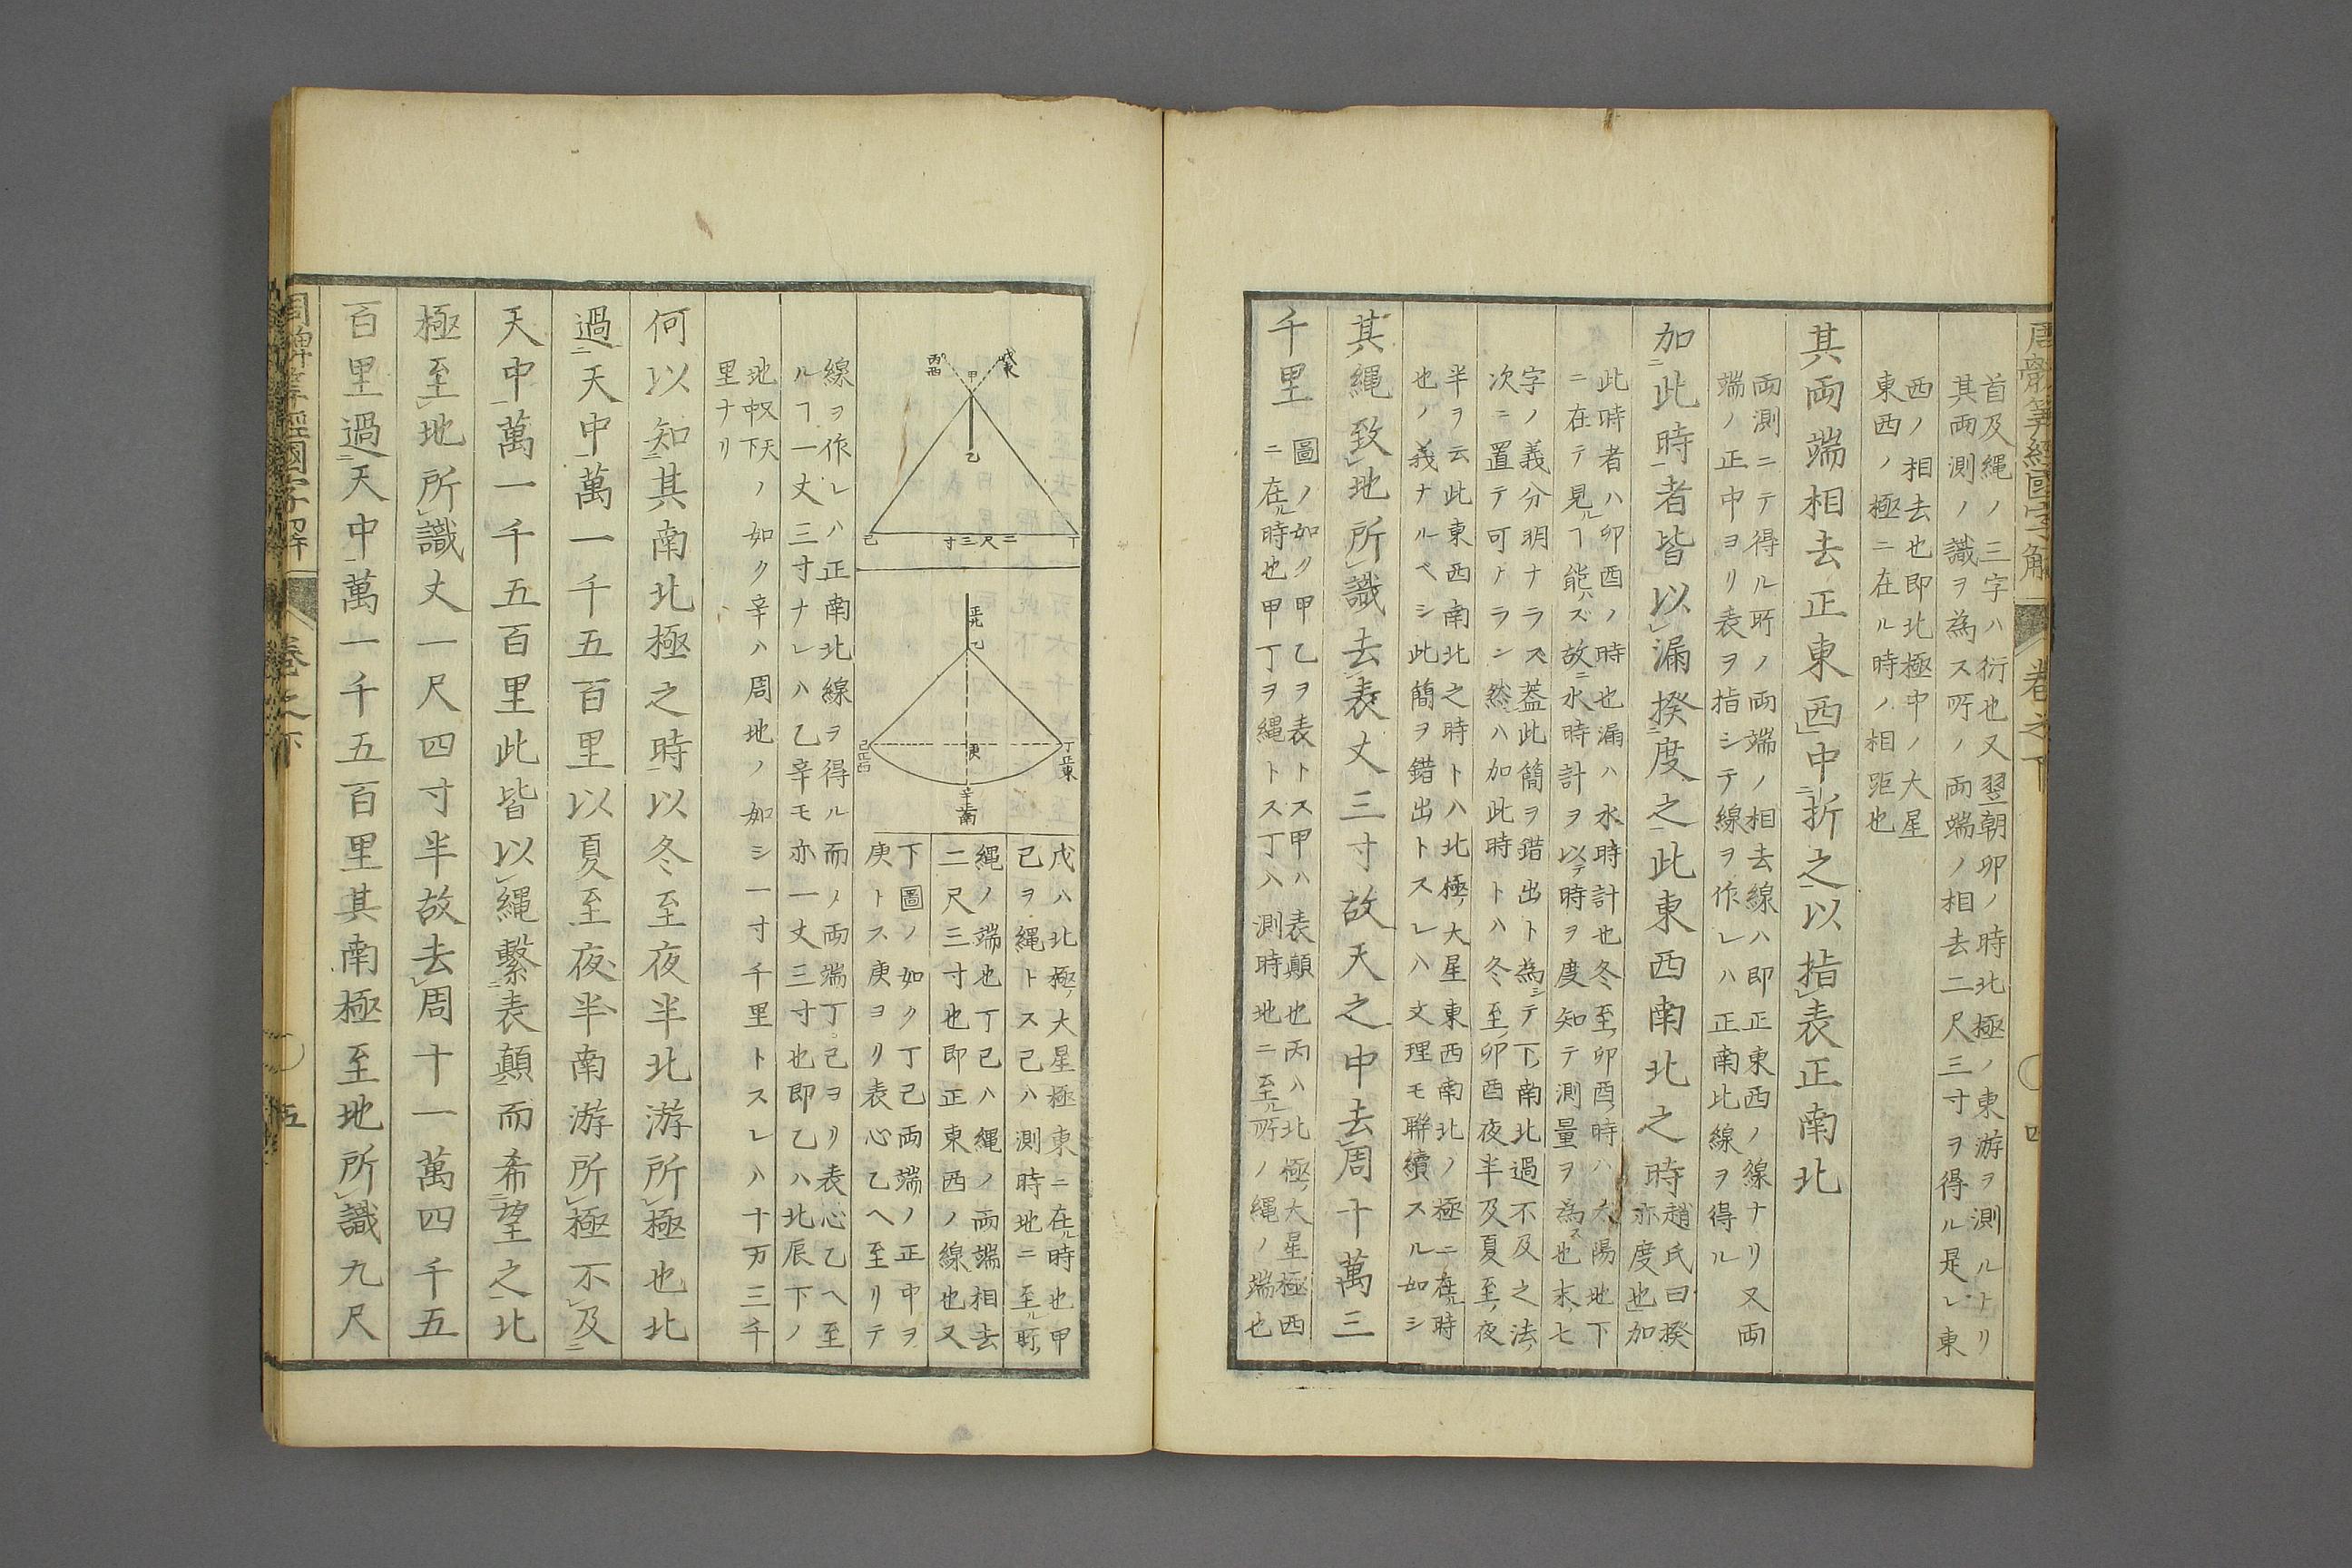 周髀算經國字解 卷之下 四
首及繩ノ三字ハ衍也又翌朝卯ノ時北極ノ東游ヲ測ルトリ
其兩測ノ識ヲ為ス所ノ兩端ノ相去二尺三寸ヲ得ル是レ東
西ノ相去也即北極中ノ大星
東西ノ極ニ在ル時ノ相距也
其兩端相去正東西中折之以指表正南北
兩測ニテ得ル所ノ兩端ノ相去線ハ即正東西ノ線ナリ又兩
端ノ正中ヨリ表ヲ指シテ線ヲ作レハ正南北線ヲ得ル
加此時者皆以漏揆度之此東西南北之時
趙氏曰揆
亦度也加
此時者ハ卯酉ノ時也漏ハ水時計也冬至卯酉時ハ太陽地下
ニ在テ見ルヿ能ハズ故ニ水時計ヲ以テ時ヲ度知テ測量ヲ為ス也末ノ七
字ノ義分明ナラズ葢此簡ヲ錯出ト為シテ下ノ南北過不及之法ノ
次ニ置テ可ナラン然ハ加此時トハ冬至卯酉夜半及夏至ノ夜
半ヲ云此東西南北之時トハ北極ノ大星東西南北ノ極ニ在ル時
也ノ義ナルベシ此簡ヲ錯出トスレハ文理モ聯續スル如シ
其繩致地所識去表丈三寸故天之中去周十萬三
千里
圖ノ如ク甲乙ヲ表トス甲ハ表顛也丙ハ北極ノ大星極西
ニ在ル時也甲丁ヲ繩トス丁ハ測時地ニ至ル所ノ繩ノ端也
戊東
丙西
甲
乙
己
二尺三寸
丁
正北
乙
丁正東
己正西
庚
辛正南
戊ハ北極ノ大星極東ニ在ル時也甲
己ヲ繩トス己ハ測時地ニ至ル所ノ
繩ノ端也丁己ハ繩ノ兩端相去
二尺三寸也即正東西ノ線也又
下圖ノ如ク丁己兩端ノ正中ヲ
庚トス庚ヨリ表心乙ヘ至リテ
線ヲ作レハ正南北線ヲ得ル而ノ兩端丁己ヨリ表心乙ヘ至
ルヿ一丈三寸ナレハ乙辛モ亦一丈三寸也即乙ハ北辰下ノ
地又天
中下ノ如ク辛ハ周地ノ如シ一寸千里トスレハ十万三千
里ナリ
何以知其南北極之時以冬至夜半北游所極也北
過天中萬一千五百里以夏至夜半南游所極不及
天中萬一千五百里此皆以繩繫表顛而希望之北
極至地所識丈一尺四寸半故去周十一萬四千五
百里過天中萬一千五百里其南極至地所識九尺
周髀算經國字解 卷之下 五